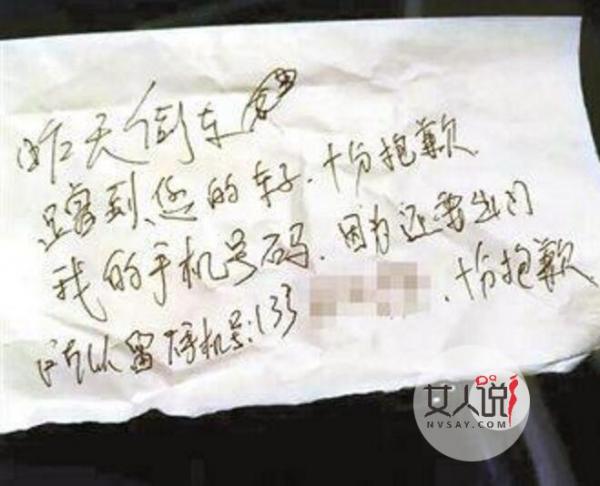 昨天倒车
到您的车子.十份抱歉.
我的手机号码.因为还要出门
所以留手机号:133 .十份抱歉
女人说
NVSAY.COM